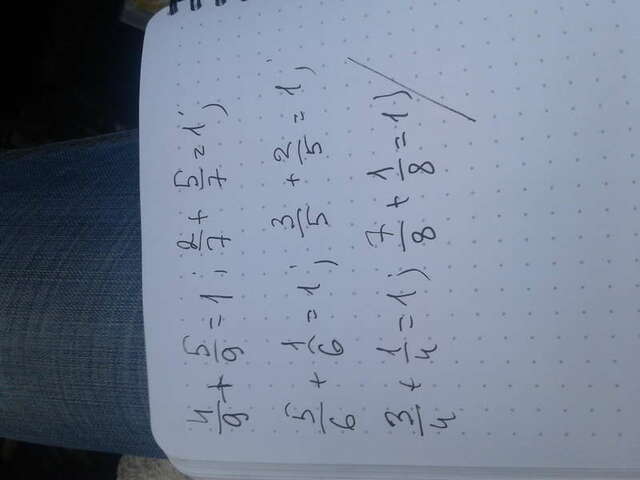 4/9 + 5/9 = 1; 2/7 + 5/7 = 1;
5/6 + 1/6 = 1; 3/5 + 2/5 = 1;
3/4 + 1/4 = 1; 7/8 + 1/8 = 1;